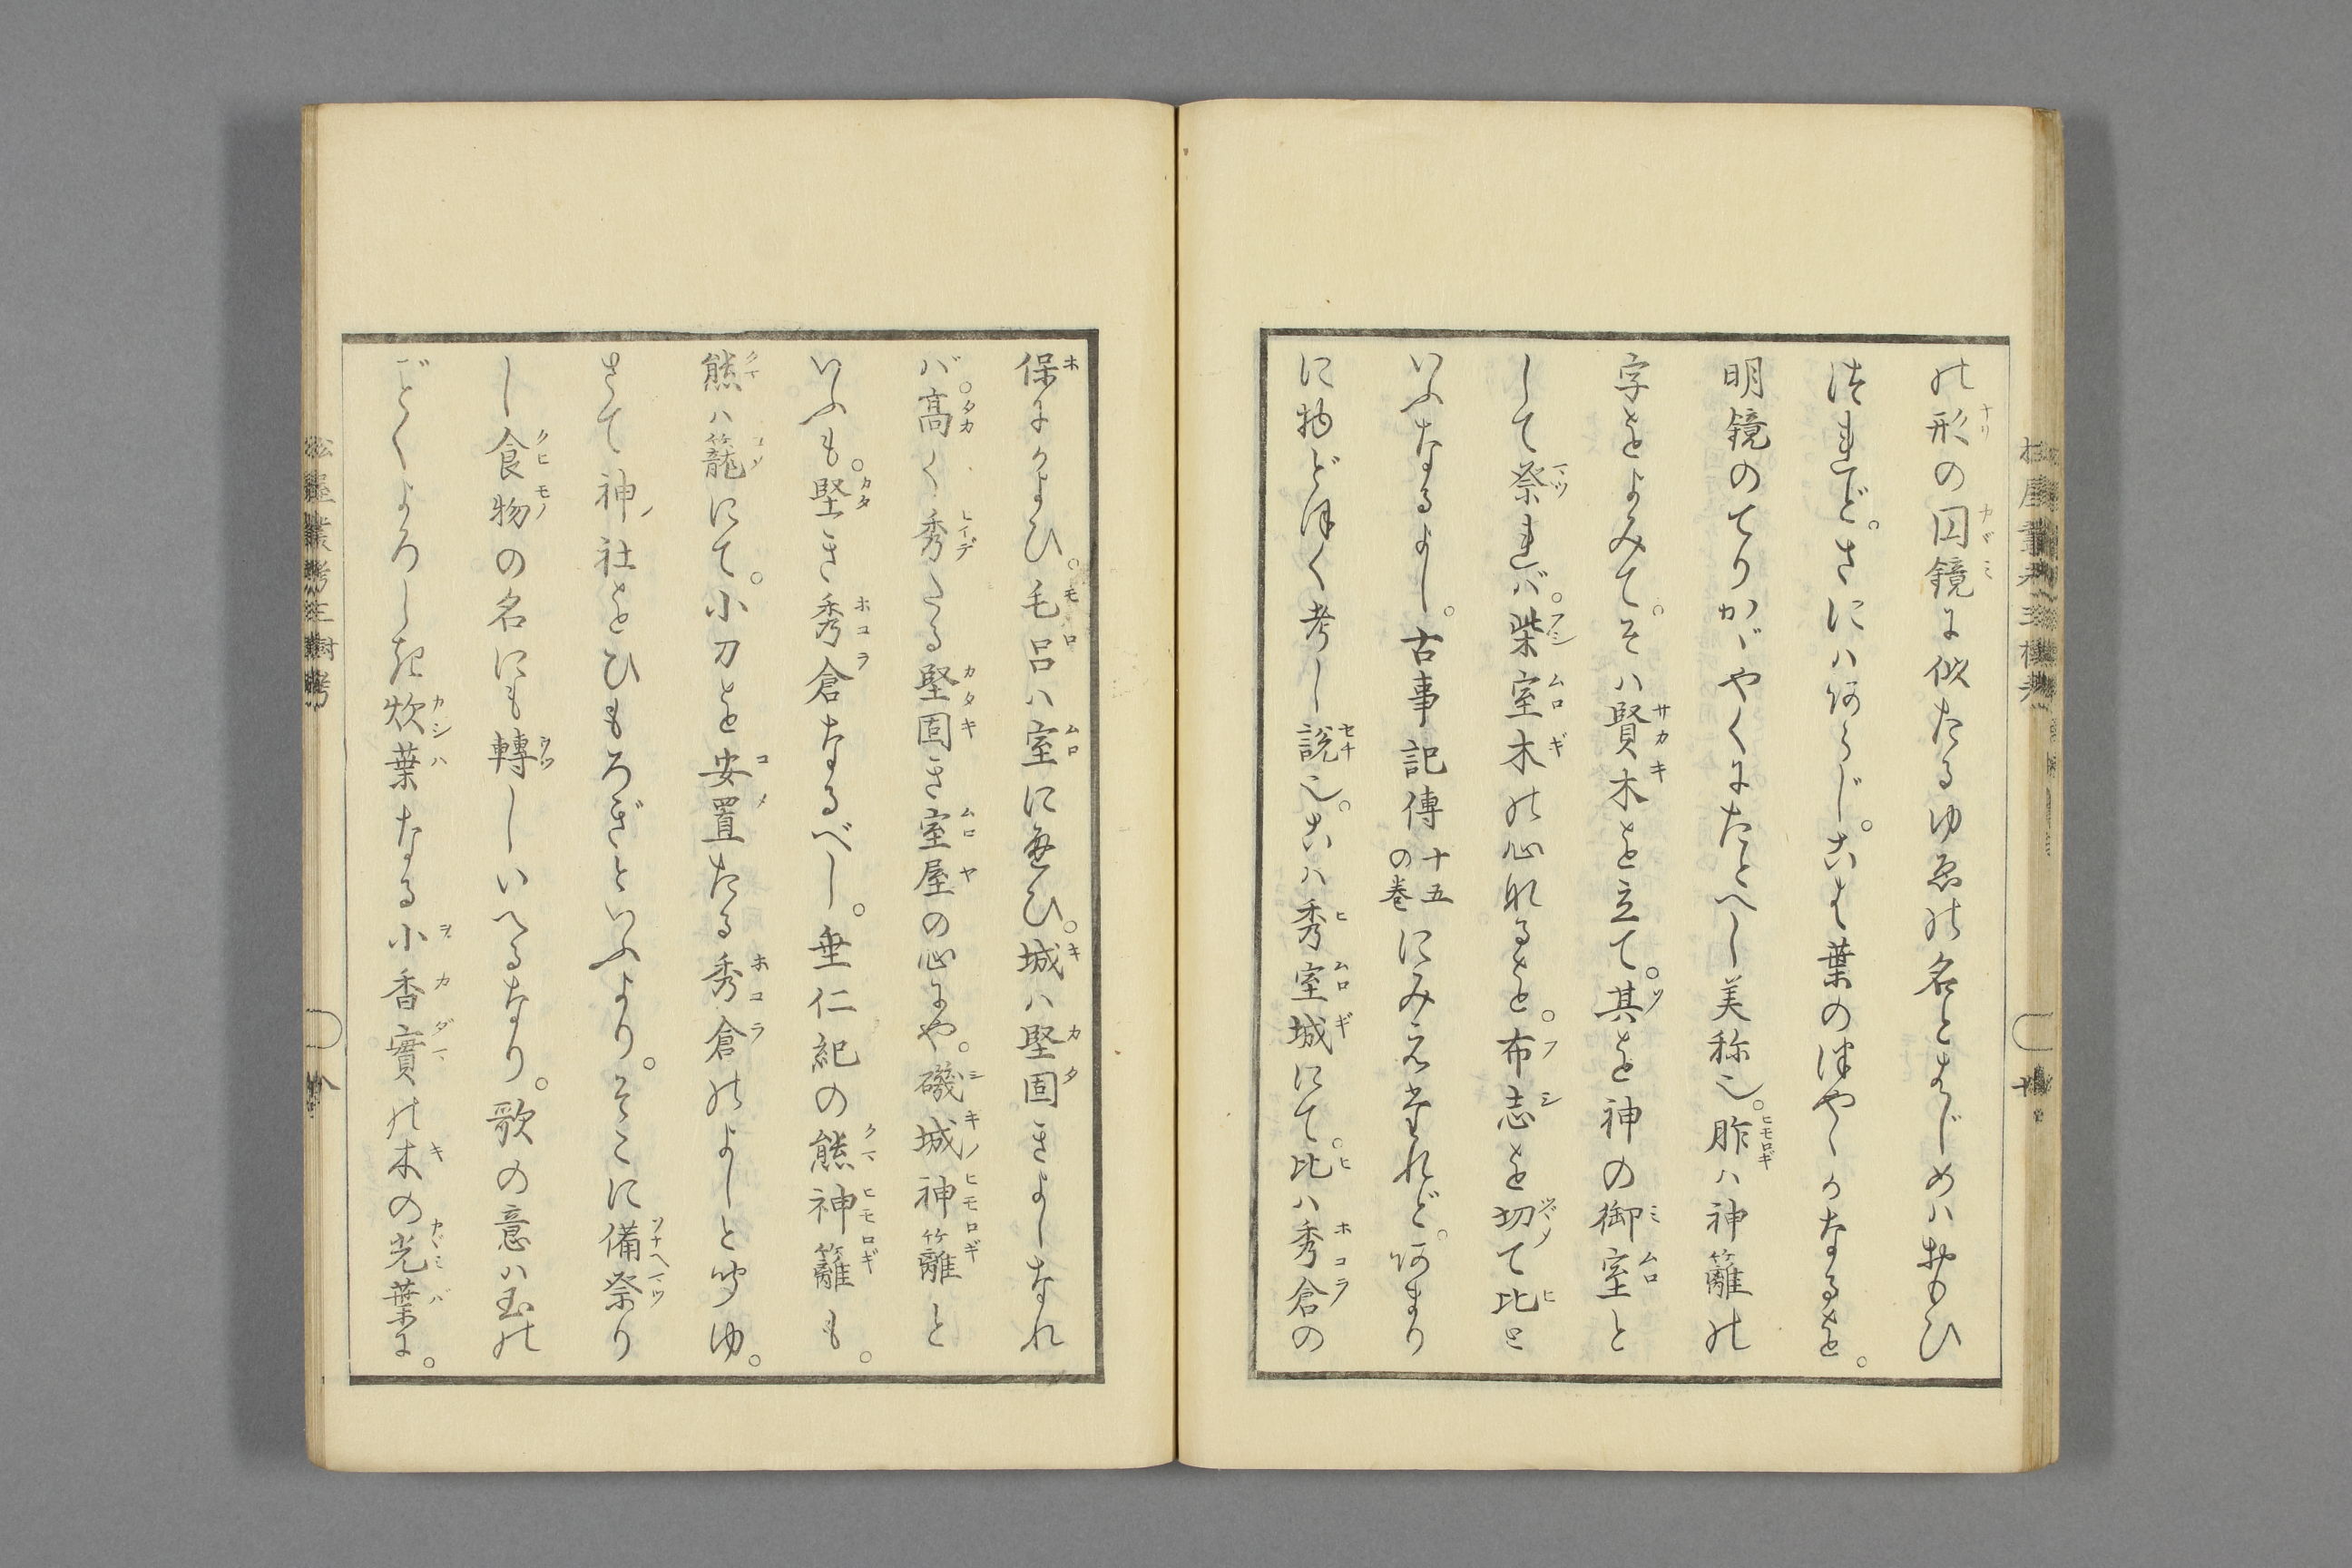 の形の円鏡に似たるゆゑの名とはじめハおもひ
つれど。さにハあらじ。こは葉のつやゝかなるを。
明鏡のてりかゞやくにたとへし美称也。胙ハ神籬の
字をよみて。そハ賢木を立て。其を神の御室と
して祭れバ。柴室木の心なるを。布志を切て比と
いふなるよし。古事記傳十五の巻にみえたれど。あまり
に物どほく考し説也。こハ秀室城にて。比ハ秀倉の
保にかよひ。毛呂ハ室に通ひ。城ハ堅固きよしなれ
バ。高く秀たる堅固き室屋の心にや。磯城神籬と
いふも。堅き秀倉なるべし。垂仁紀の熊神籬も。
熊ハ籠にて。小刀を安置たる秀倉のよしと聞ゆ。
さて神社をひもろぎといふより。そこに備祭り
し食物の名にも轉しいへるなり。歌の意ハ玉の
ごとくよろしき炊葉なる小香實の木の光葉に。
松屋叢考三樹考
八